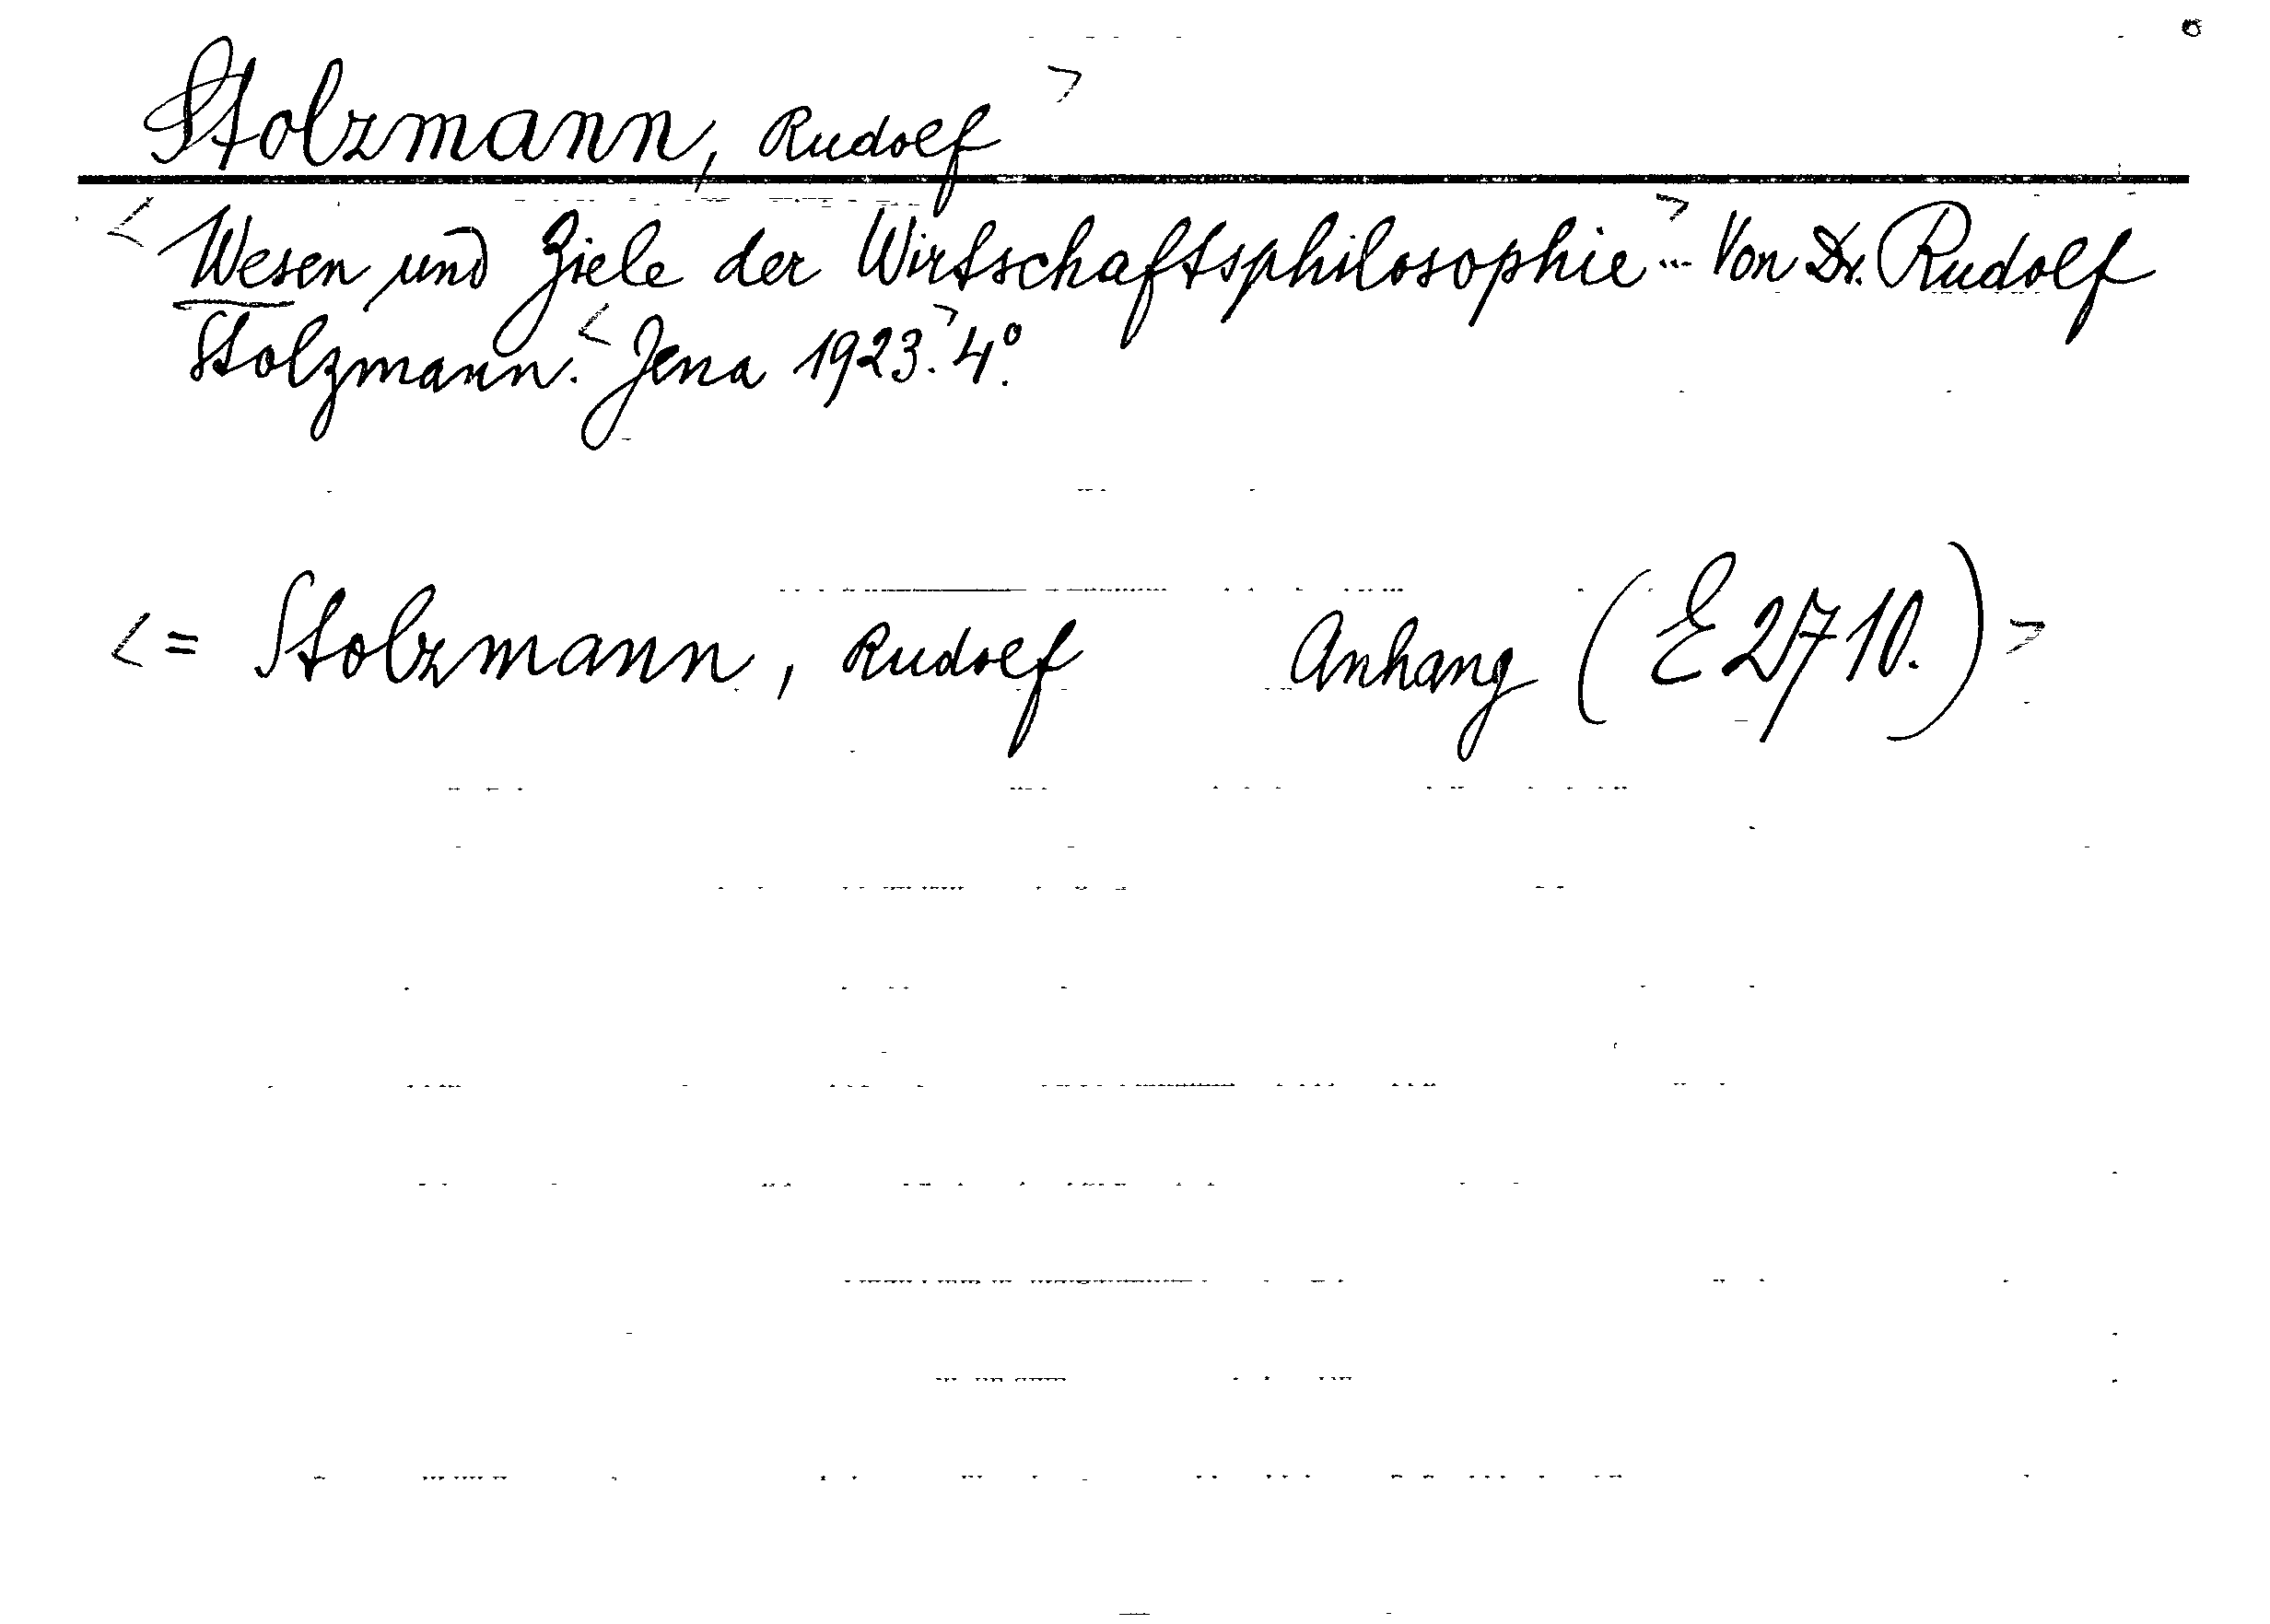 Stolzmann, Rudolf >
< Wesen und Ziele der Wirtschaftsphilosophie > ... Von Dr. Rudolf
Stolzmann. < Jena 1923. > 4°.
< = Stolzmann, Rudolf Anhang (E 2710.) >